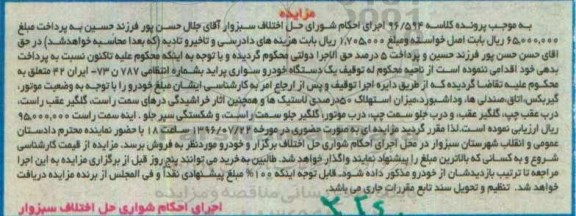 مزایده
به موجب پرونده کلاسه ۹۶/۵۹۴ اجرای احکام شورای حل اختلاف سبزوار آقای جلال حسن پور فرزند حسین به پرداخت مبلغ
۶۵,۰۰۰,۰۰۰ ریال بابت اصل خواسته ومبلغ ۱,۷۰۵,۰۰۰ ریال بابت هزینه های دادرسی و تاخیر و تادیه (که بعدا محاسبه خواهدشد) در حق
آقای حسن حسن پور فرزند حسین و پرداخت ۵ درصد حق الاجرا دولتی محکوم گردیده و با توجه به اینکه محکوم علیه تاکنون نسبت به پرداخت
بدهی خود اقدامی ننموده است از ناحیه محکوم له توقیف یک دستگاه خودرو سواری پراید بشماره انتظامی ۷۸۷ ن ۷۳- ایران ۴۲ متعلق به
محکوم علیه تقاضا گردیده که از طریق دایره اجرا توقیف و پس از ارجاع امر به کارشناسی ایشان مبلغ خودرو را با توجه به وضعیت موتور،
گیربکس،اتاق،صندلی ها، وداشبورد،میزان استهلاک ۵۰درصدی لاستیک ها و همچنین آثار خراشیدگی درهای سمت راست، گلگیر عقب راست،
درب عقب چپ، گلگیر عقب، و درب جلو سمت چپ، درب موتور، گلگیر جلو سمت راست، و شکستگی سپر جلو . اینه سمت راست ۹۵,۰۰۰,۰۰۰
ریال ارزیابی نموده است.لذا مقرر گردید مزایده ای به صورت حضوری در مورخه ۱۳۹۶/۰۷/۲۴ ساعت ۱۸ با حضور نماینده محترم دادستان
عمومی و انقلاب شهرستان سبزوار در محل اجرای احکام شورای حل اختلاف برگزار و خودرو موردنظر به فروش برسد. مزایده از قیمت کارشناسی
شروع و به کسانی که بالاترین مبلغ را پیشنهاد نمایند واگذار خواهد شد. طالبین به خرید می توانند پنج روز قبل از برگزاری مزایده به این اجرا
مراجعه تا ترتیب بازدیدشان از خودرو مذکور داده شود. قابل توجه اینکه ۱۰۰٪ مبلغ پیشنهادی نقدا و فی المجلس از برنده مزایده دریافت
خواهدشد. تنظیم و تحویل سند تابع مقررات جاری می باشد.
اجرای احکام شورای حل اختلاف سبزوار